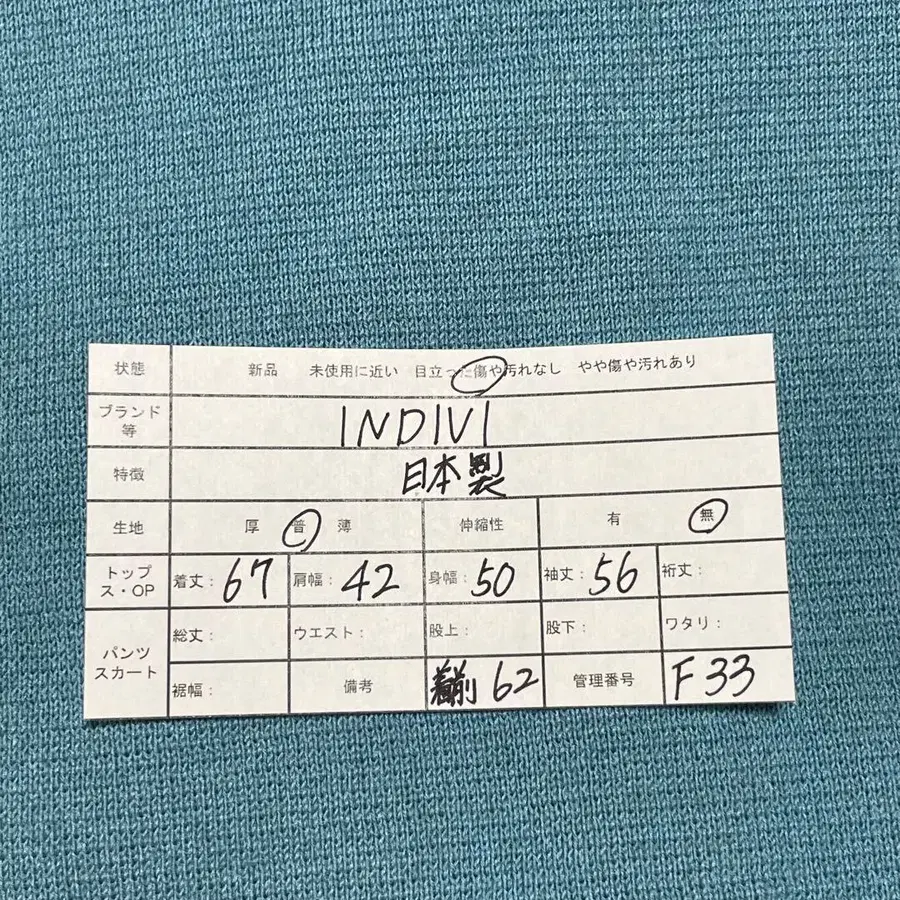 状態 新品 未使用に近い 目立った傷や汚れなし やや傷や汚れあり
ブランド等 INDIVI
特徴 日本製
生地 厚 普 薄 伸縮性 有 無
トップス・OP 着丈: 67 肩幅: 42 身幅: 50 袖丈: 56 裄丈:
パンツ スカート 総丈: ウエスト: 股上: 股下: ワタリ:
裾幅: 備考 前 62 管理番号 F33